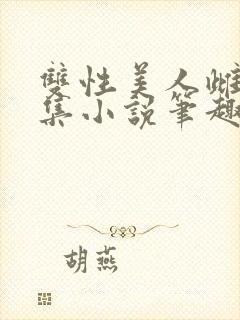 雙性美人雌
集小說筆趣
胡燕